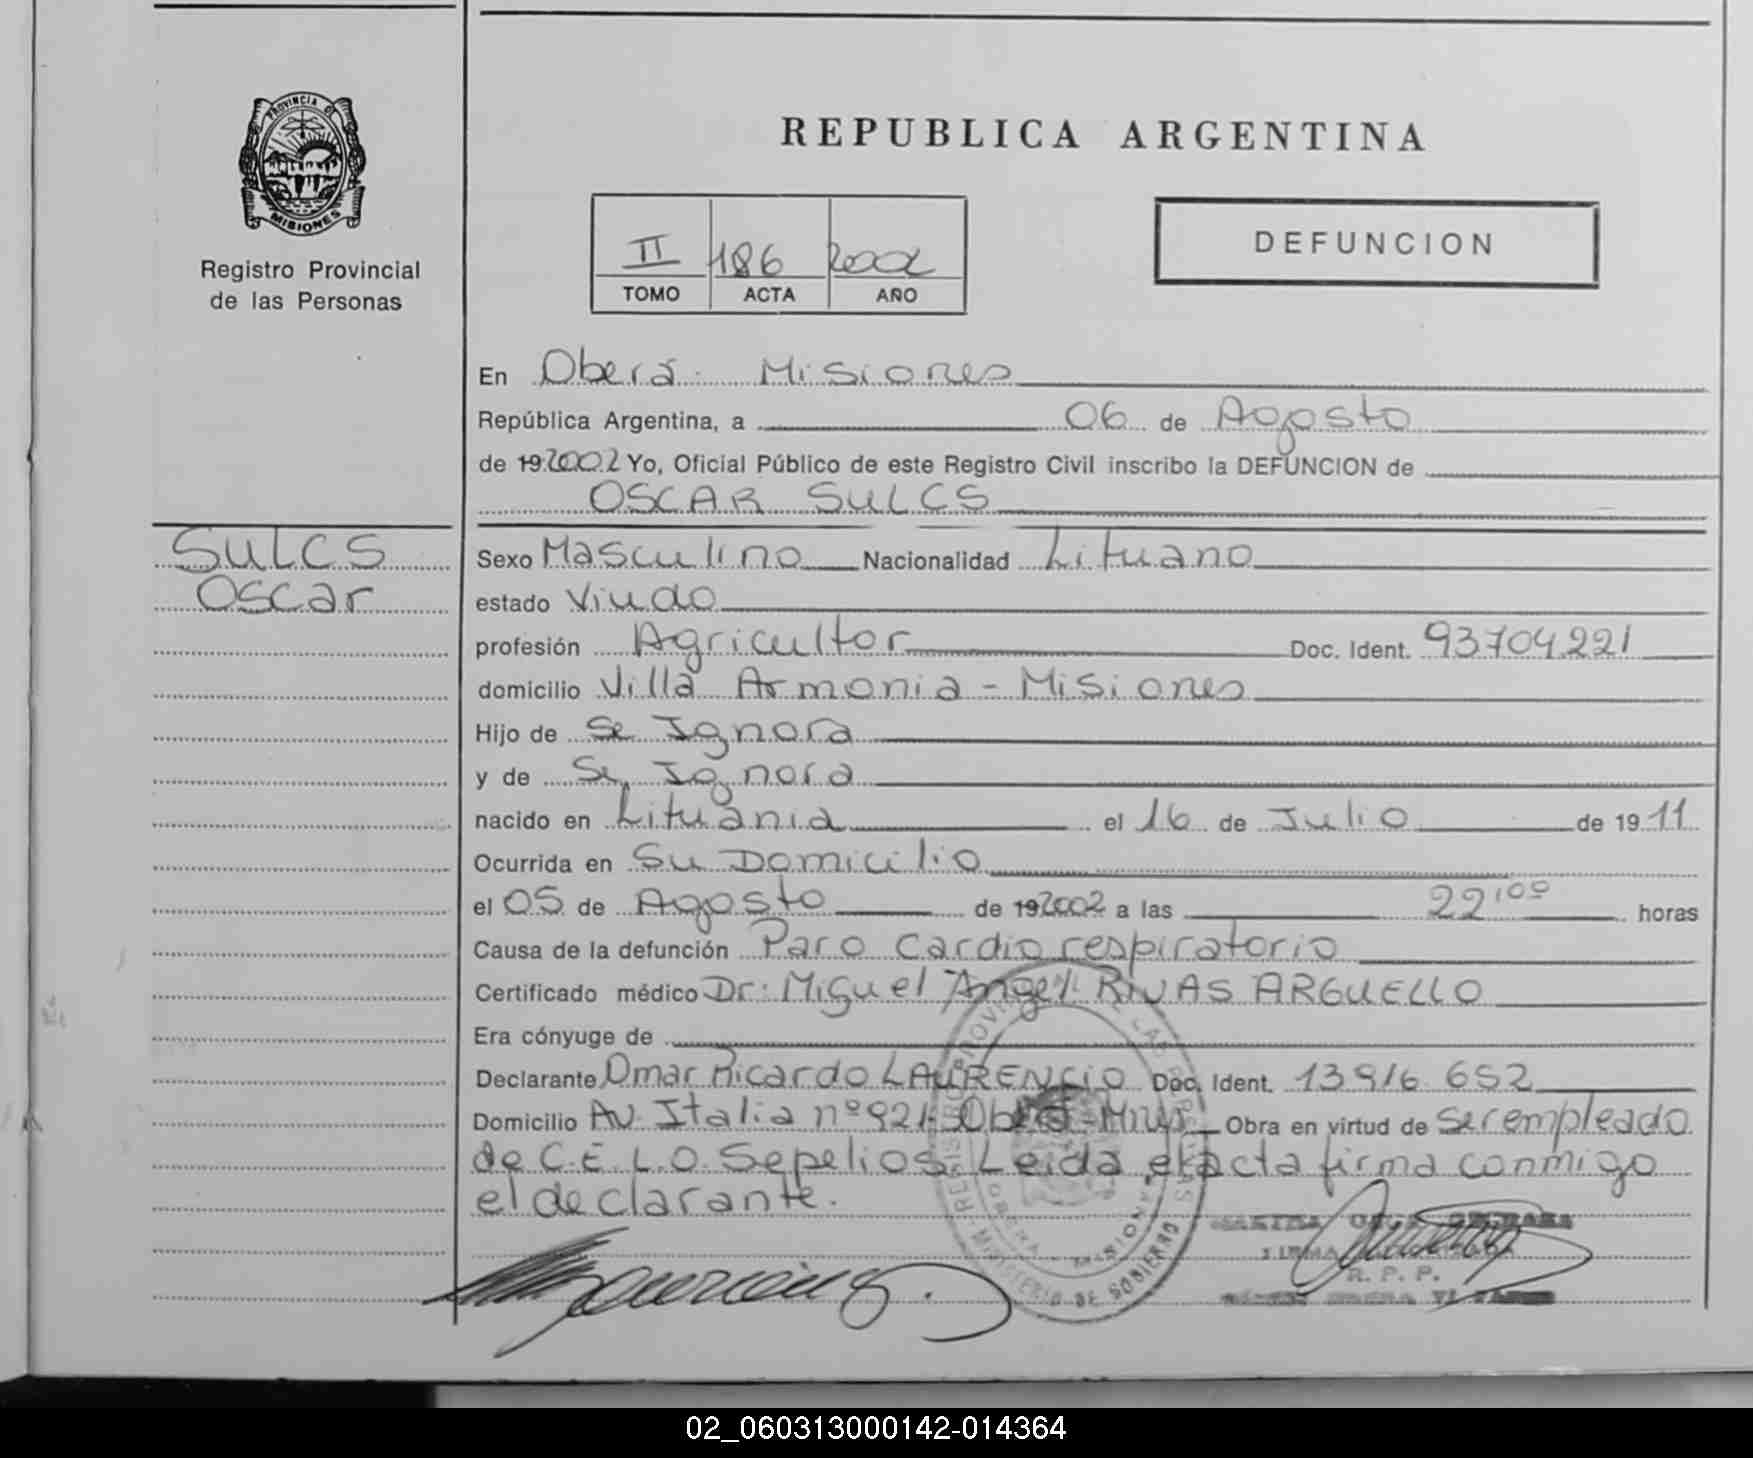 PROVINCIA DE
MISIONES
Registro Provincial
de las Personas
REPUBLICA ARGENTINA
II 186 2002
TOMO ACTA AÑO
DEFUNCION
En Oberá Misiones
República Argentina, a 06 de Agosto
de 19 2002 Yo, Oficial Público de este Registro Civil inscribo la DEFUNCION de
OSCAR SULCS
SULCS
Oscar
Sexo Masculino Nacionalidad Lituano
estado Viudo
profesión Agricultor Doc. Ident. 93704221
domicilio Villa Armonia - Misiones
Hijo de Se Ignora
y de Se Ignora
nacido en Lituania el 16 de Julio de 1911
Ocurrida en Su Domicilio
el 05 de Agosto de 19 2002 a las 22,00 horas
Causa de la defunción Paro Cardio respiratorio
Certificado médico Dr: Miguel Angel RIVAS ARGUELLO
Era cónyuge de
Declarante Omar Ricardo LAURENCIO Doc. Ident. 13916652
Domicilio Av. Italia nº 921- Oberá - Mnes Obra en virtud de ser empleado
de C.E.L.O. Sepelios. Leida el acta firma conmigo
el declarante.
MINISTERIO DE GOBIERNO
OBERA - MISIONES
R. P. P.
02_060313000142-014364